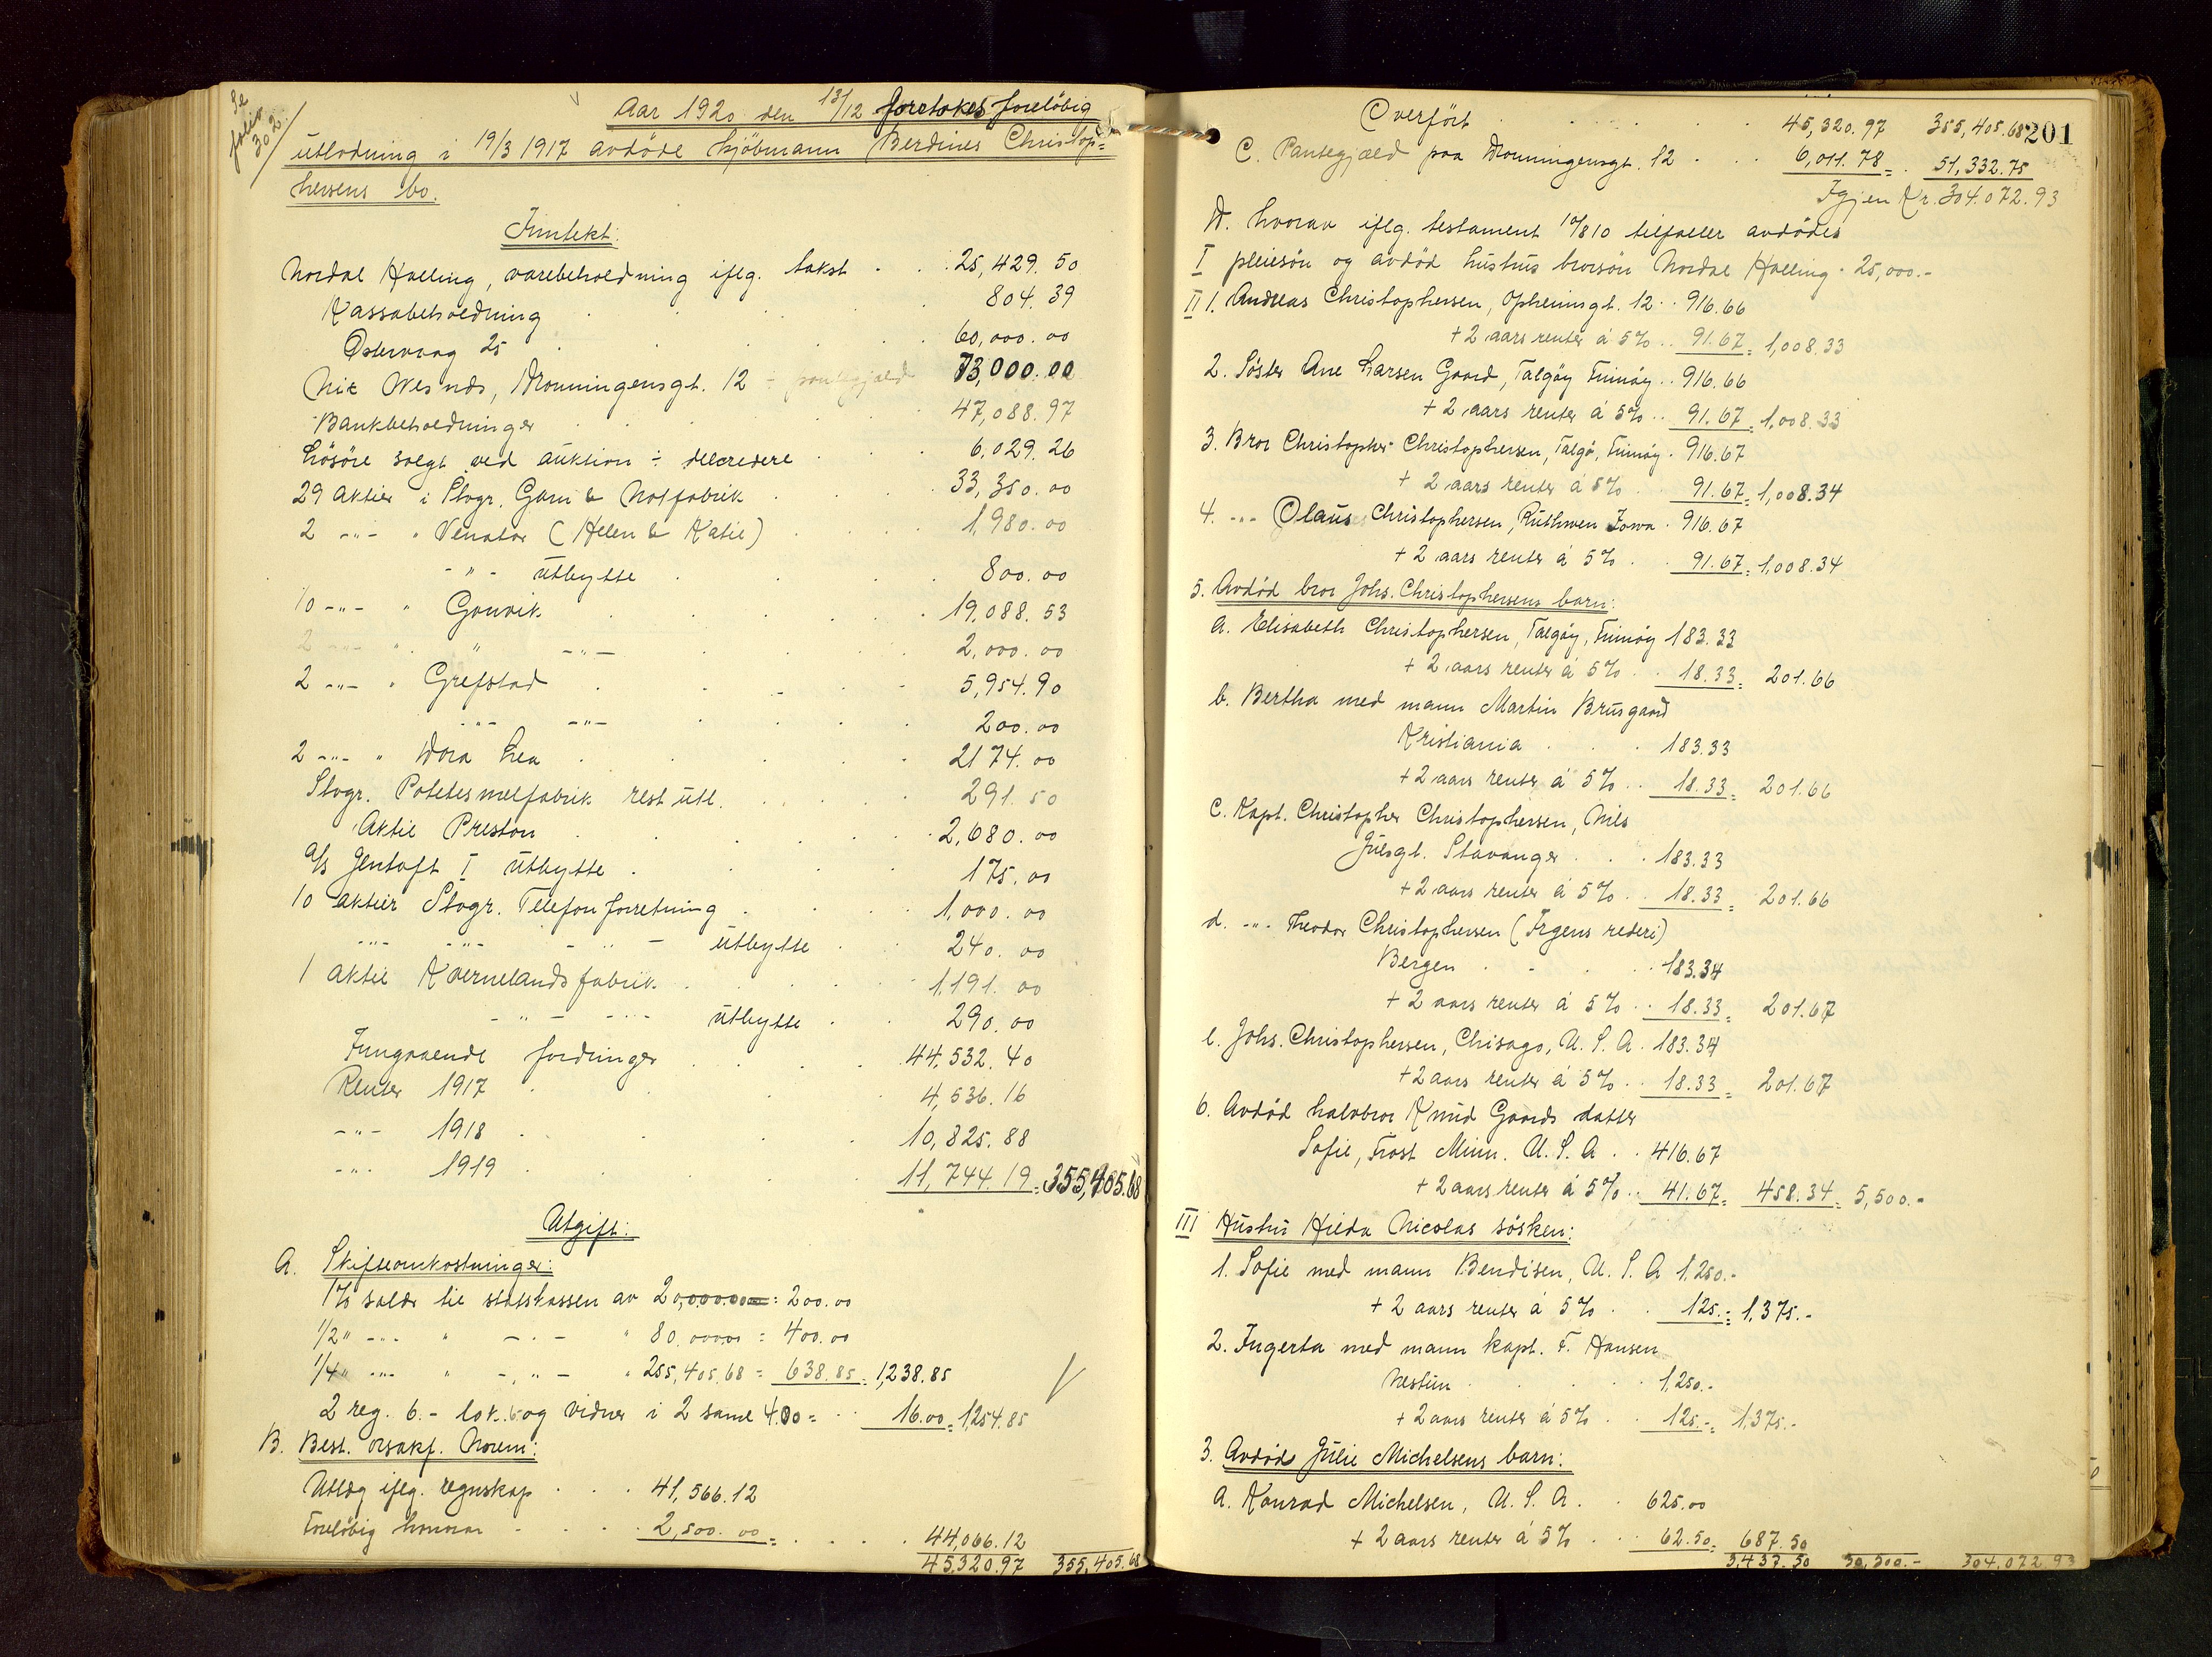 Se
folio
302
Aar 1920 den 13/12 foretokes foreløbig
utlodning i 19/3 1917 avdøde kjöbmann Berdines Christop=
hersens bo.
Inntekt:
Nordal Halling, varebeholdning iflg. takst . . 25,429.50
Kassabeholdning . . 804.39
Østervaag 25 . . . 60,000.00
Dronningensgt. 12 ÷ pantegjæld 73,000.00
Bankbeholdninger . . . 47,088.97
Løsøre solgt ved auktion ÷ delcredere . . 6,029.26
29 aktier i Stvgr. Garn & Notfabrik . . . 33,350.00
2 -"- " Venator (Helen & Katie) . . . 1,980.00
-"- utbytte . . . 800.00
10 -"- " Gonvik . . . 19,088.53
2 -"- " " -"- . . . 2,000.00
2 -"- " Grefstad . . . 5,954.90
-"- -"- . . . 200.00
2 -"- " Dora Lea . . . 2174.00
Stvgr. Potetesmelfabrik rest utl. . . . 291.50
Aktie Preston . . . 2,680.00
A/s Jentoft I utbytte . . . 175.00
10 aktier Stvgr. Telefonforretning . . . 1,000.00
-"- -"- - " - utbytte . 240.00
1 aktie Kvernelands fabrik . . . 1,191.00
- " - -"- utbytte . . 290.00
Inngaaende fordringer . . . 44,532.40
Renter 1917 . . . 4,536.16
-"- 1918 . . . 10,825.88
-"- 1919 . . . 11,744.19 = 355,405.68
Utgift:
A. Skifteomkostninger:
1% salær til statskassen av 20,000.00 = 200.00
1/2 " -"- " - " - " 80.000.00 = 400.00
1/4 " -"- " - " - " 255,405.68 = 638.85 = 1,238.85
2 reg. 6.- lok. og vidner i 2 saml 4.00 = . . 16.00 = 1254.85
B. Best. orsakf. Norem:
Utlæg iflg. regnskap . . . 41,566.12
Foreløbig honorar . . . 2,500.00 = . . . 44,066.12
45320.97 355,405.68
201
Overført . . . 45,320.97 355,405.68
C. Pantegjæld paa Dronningensgt. 12 . . . 6,011.78 = . 51,332.75
Igjen Kr. 304.072.93
D. hvorav iflg. testament 10/8 10 tilfaller avdødes
I pleiesøn og avdød hustrus brorsøn Nordal Halling . 25,000.-
II 1. Andreas Christophersen, Opheimsgt. 12 . . 916.66
+ 2 aars renter á 5% . . 91.67 = 1,008.33
2. Søster Ane Larsen Gaard, Talgøy Finnøy . . 916.66
+ 2 aars renter á 5% . . 91.67 = 1,008.33
3. Bror Christopher Christophersen, Talgø, Finnøy . 916.67
+ 2 aars renter á 5% . 91.67 = 1,008.34
4. -"- Olaus Christophersen, Ruthwen Iowa . 916.67
+ 2 aars renter á 5% . . 91.67 = 1,008.34
5. Avdød bror Johs. Christophersens barn:
a. Elisabeth Christophersen, Talgøy, Finnøy 183.33
+ 2 aars renter á 5% . . 18.33 = 201.66
b. Bertha med mann Martin Brusgaard
Kristiania . . . 183.33
+ 2 aars renter á 5% . . 18.33 = 201.66
c. Kapt. Christopher Christophersen, Nils
Juelsgt. Stavanger . . . 183.33
+ 2 aars renter á 5% . . 18.33 = 201.66
d. -"- Theodor Christophersen (Irgens rederi)
Bergen . . . . 183.34
+ 2 aars renter á 5% . . 18.33 = 201.67
e. Johs. Christophersen, Chisago, U. S. A . 183.34
+ 2 aars renter á 5% . . 18.33 = 201.67
6. Avdød halvbror Knud Gaards datter
Sofie, Frost Minn. U. S. A . . 416.67
+ 2 aars renter á 5% . . 41.67 = 458.34 = 5,500.-
III Hustru Hilda Nicolas søsken:
1. Sofie med mann Bendisen, U. S. A 1,250.-
+ 2 aars renter á 5% . . 125.- = 1,375.-
2. Ingerta med mann kapt. F. Hansen
Nestun . . . 1,250.-
+ 2 aars renter á 5% . . 125.- = 1,375.-
3. Avdøde Julie Michelsens barn:
a. Konrad Michelsen, U. S. A. . 625.00
+ 2 aars renter á 5% . . 62.50 = 687.50
3,437.50 30,500.- 304.072.93